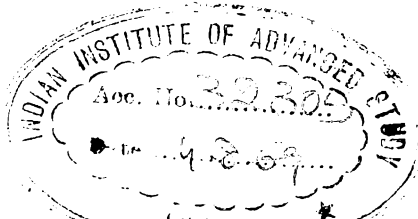 INDIAN INSTITUTE OF ADVANCED STUDY
Acc. No. 32305